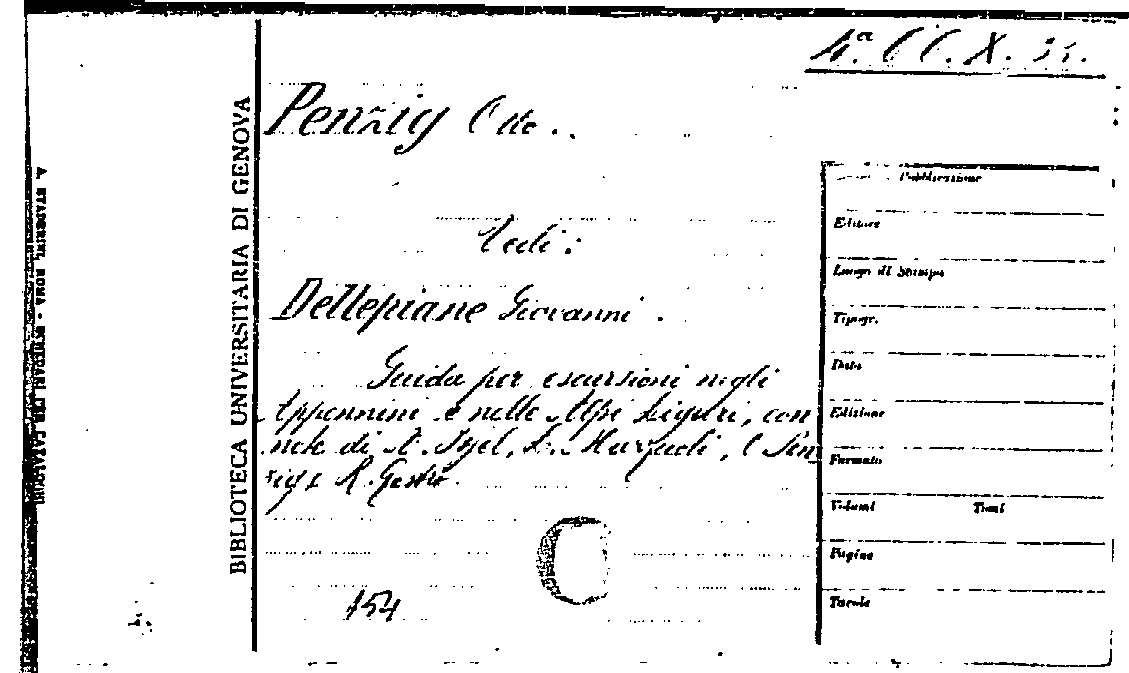 4.ª CC. X.
Penzig
Vedi:
Dellepiane Giovanni.
Guida per escursioni negli
Appennini e nelle Alpi Liguri, con
note di A. Issel, L. Mazzuoli, O Pen
zig e R. Gestro.
154
BIBLIOTECA UNIVERSITARIA DI GENOVA
A. STADERINI, ROMA -
Pubblicazione
Editore
Luogo di Stampa
Tipogr.
Data
Edizione
Formato
Volumi Tomi
Pagine
Tavole